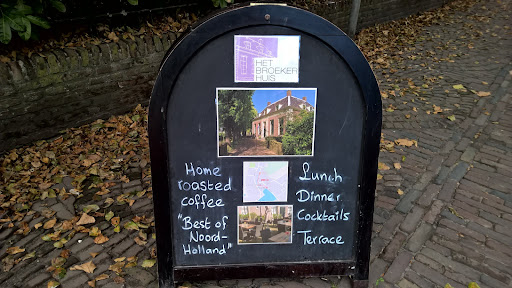 HET
BROEKER
HUIS
Home
roasted
coffee
"Best of
Noord-
Holland"
Lunch
Dinner
Cocktails
Terrace